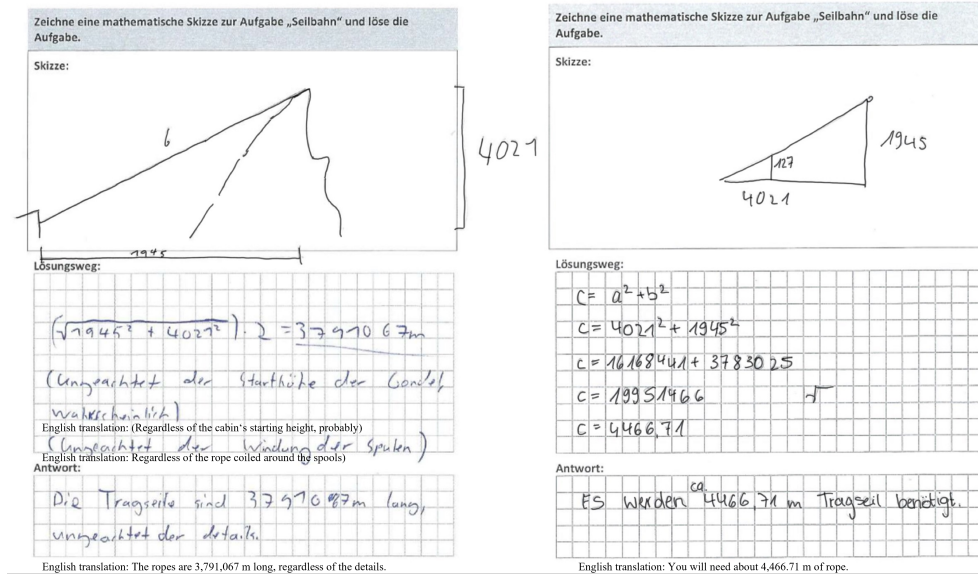 Zeichne eine mathematische Skizze zur Aufgabe „Seilbahn“ und löse die
Aufgabe.
Skizze:
6
4021
1945
Lösungsweg:
(√1945² + 4021²) · 2 = 3791067m
(Ungeachtet der Starthöhe der Gondel,
wahrscheinlich)
English translation: (Regardless of the cabin's starting height, probably)
(Ungeachtet der Windung der Spulen)
English translation: Regardless of the rope coiled around the spools)
Antwort:
Die Tragseile sind 3791067m lang,
ungeachtet der details.
English translation: The ropes are 3,791,067 m long, regardless of the details.
Zeichne eine mathematische Skizze zur Aufgabe „Seilbahn“ und löse die
Aufgabe.
Skizze:
1945
127
4021
Lösungsweg:
c = a² + b²
c = 4021² + 1945²
c = 16168441 + 3783025
c = 19951466 √
c = 4466,71
Antwort:
ca.
ES werden 4466,71 m Tragseil benötigt.
English translation: You will need about 4,466.71 m of rope.